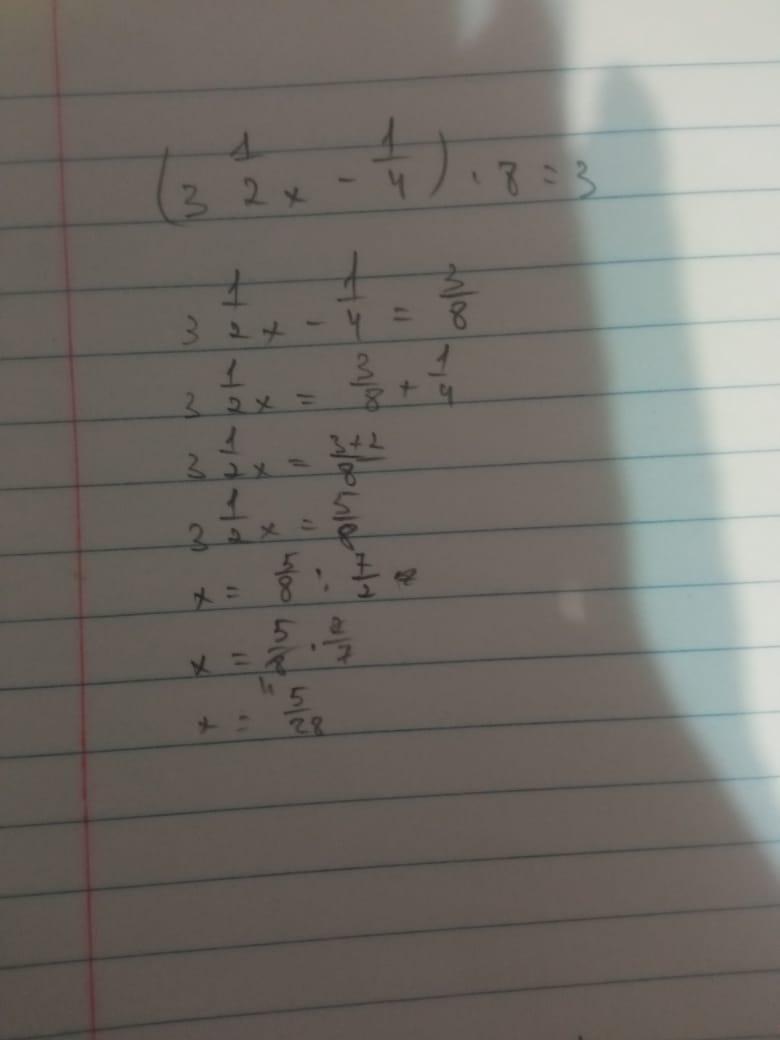 (3 1/2 x - 1/4) · 8 = 3
3 1/2 x - 1/4 = 3/8
3 1/2 x = 3/8 + 1/4
3 1/2 x = 3+2/8
3 1/2 x = 5/8
x = 5/8 : 7/2
x = 5/8 · 2/7
x = 5/28